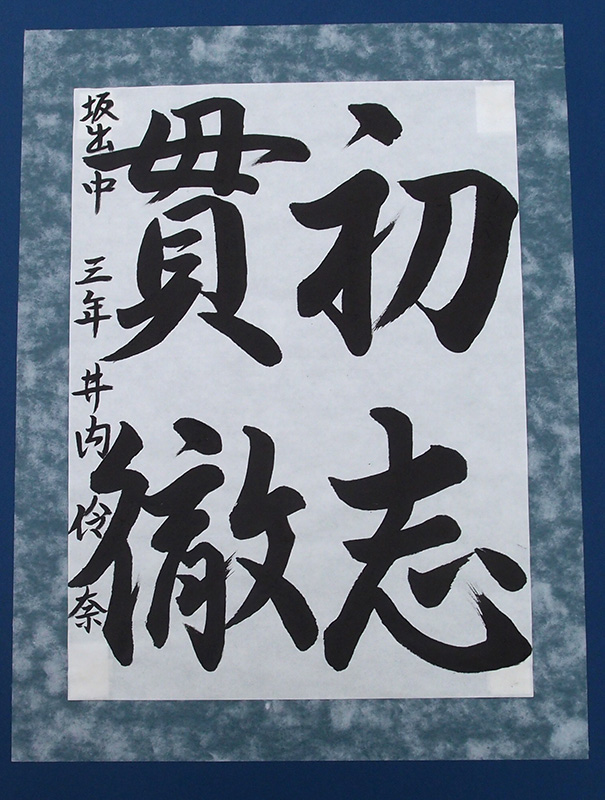 初志
貫徹
坂出中 三年 井内伶奈